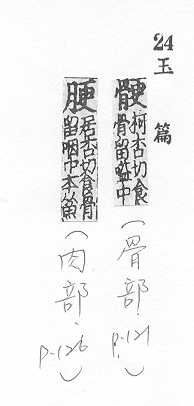 24 玉篇
骾 柯杏切食骨留嗌中
(骨部. P.121)
𦛟 居杏切食骨留咽中本从魚
(肉部. P.126)